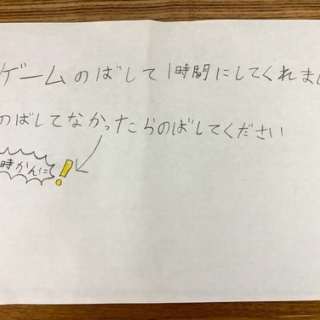 ゲームのばして1時間にしてくれまし
のばしてなかったらのばしてください
時かんに!